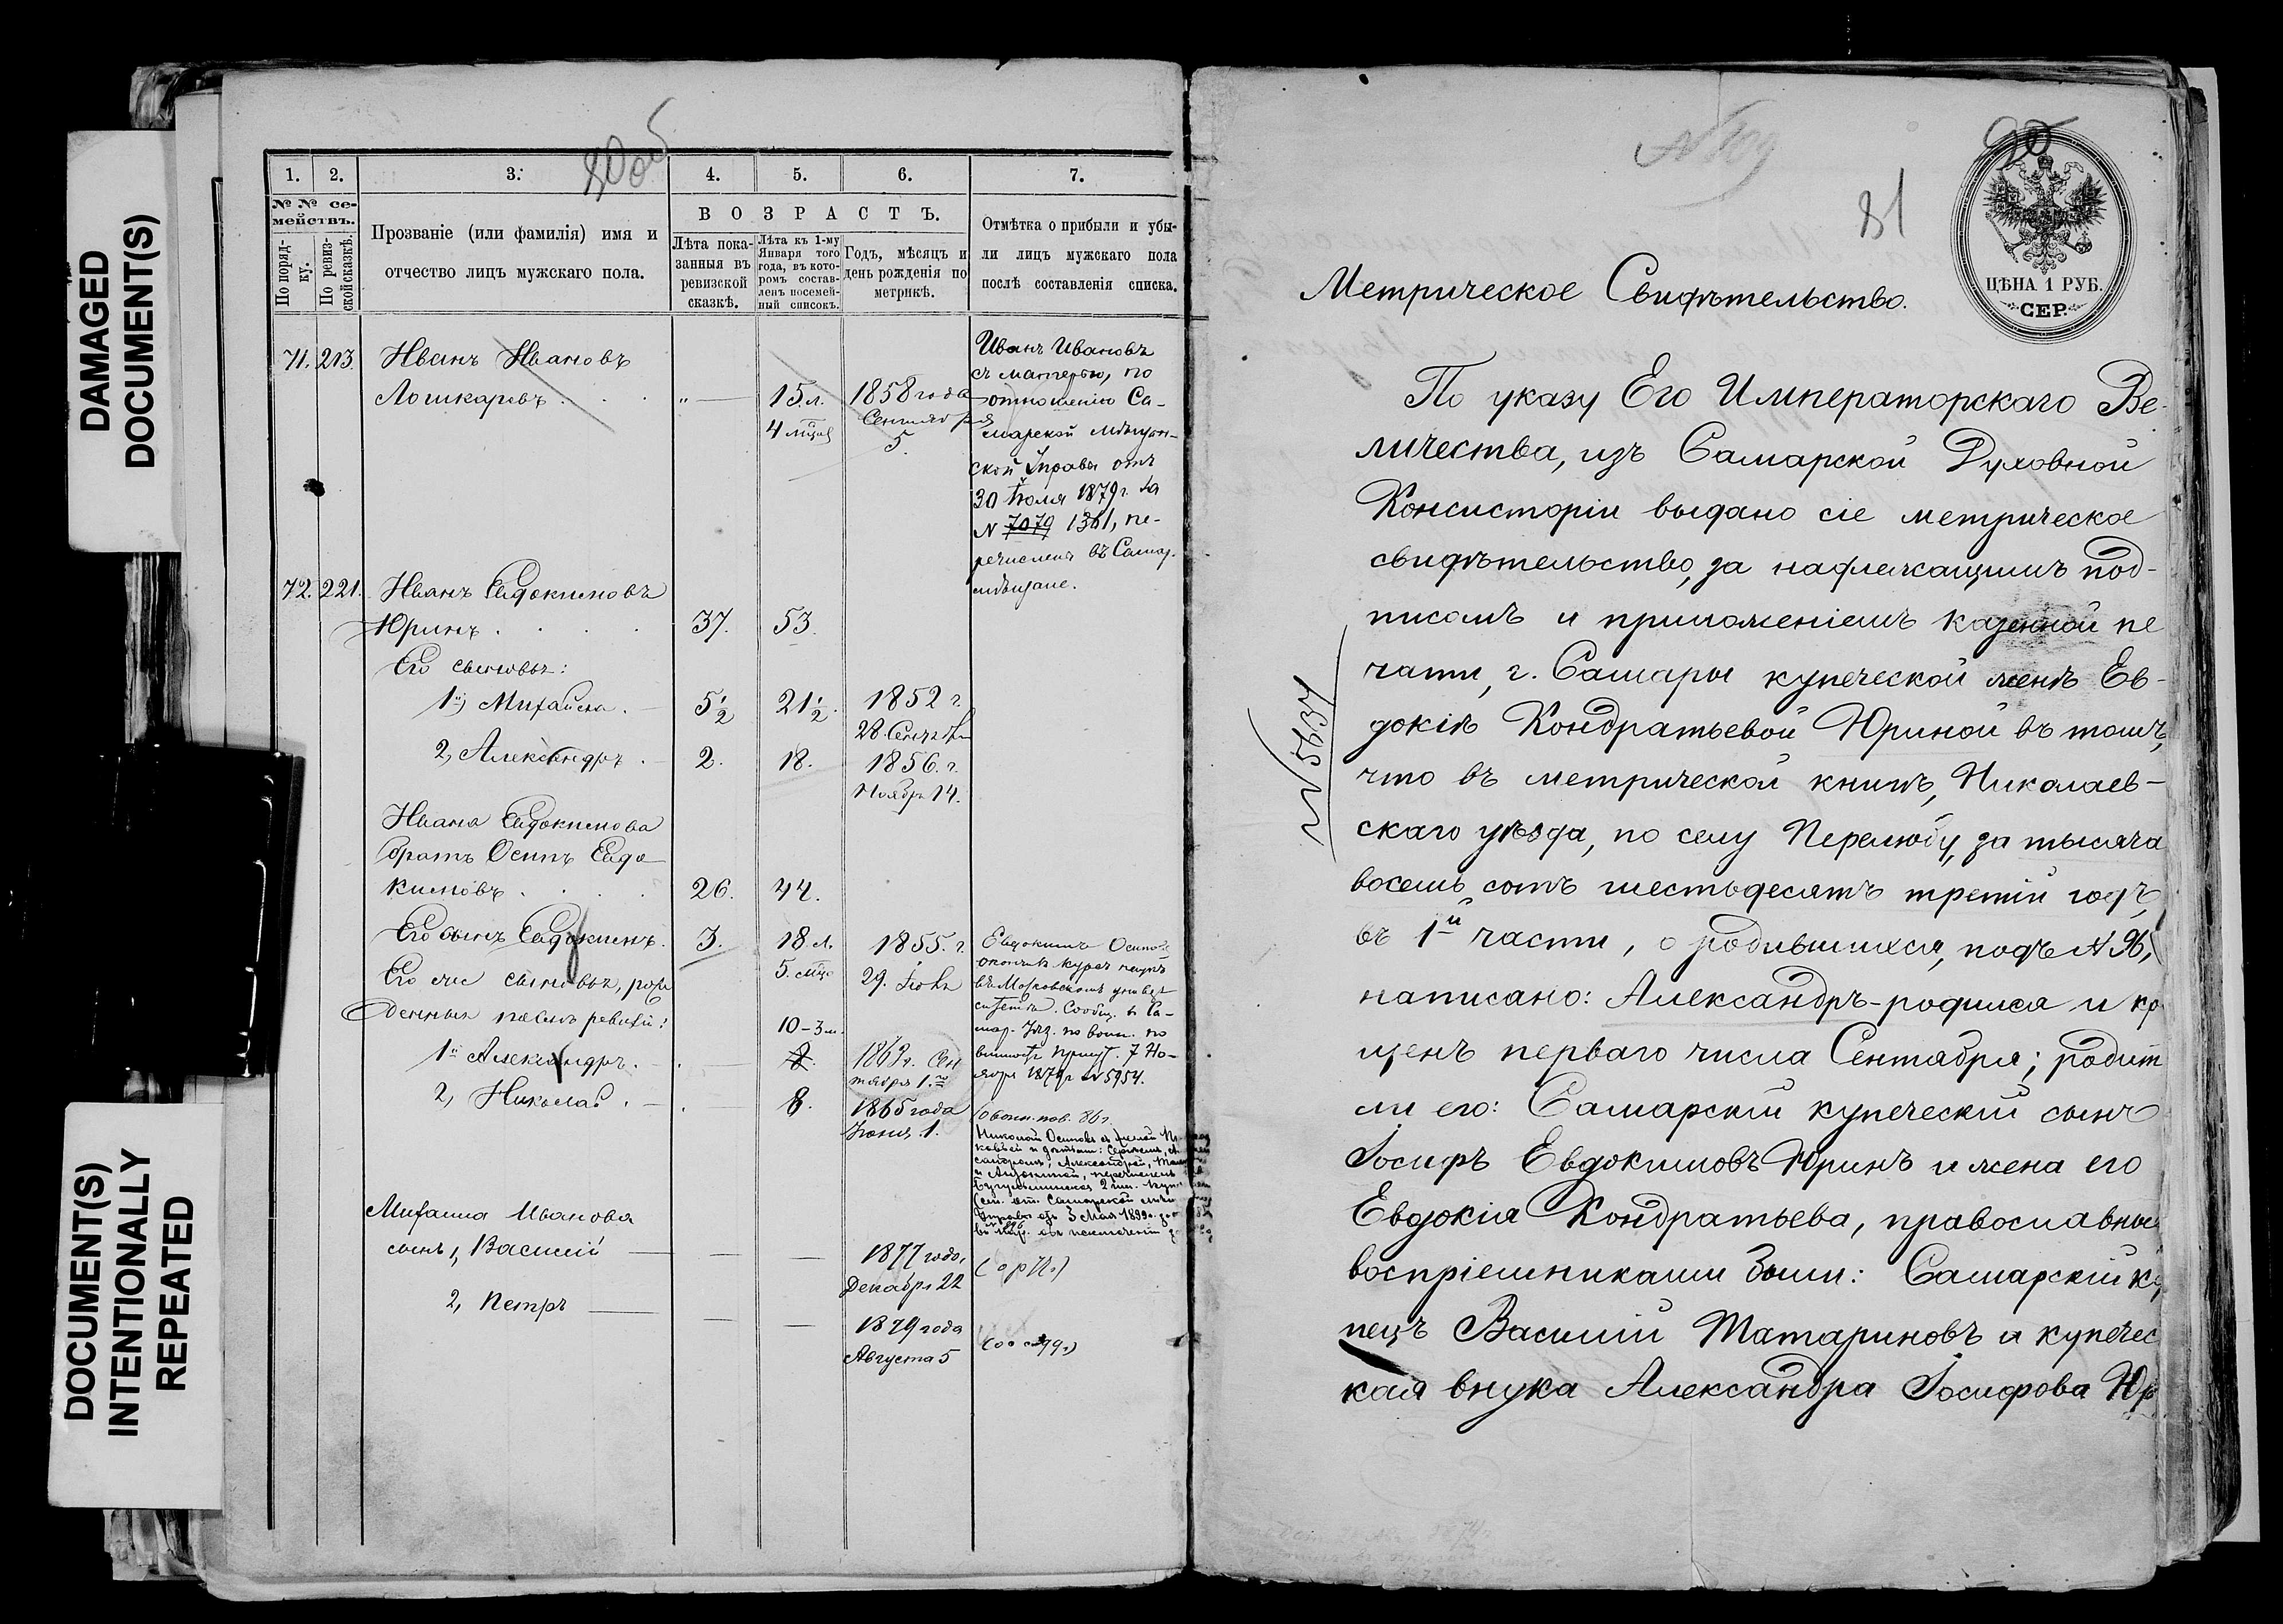 DAMAGED
DOCUMENT(S)
DOCUMENT(S)
INTENTIONALLY
REPEATED
80об
1. 2. 3. 4. 5. 6. 7.
№ № се-
мействъ.
По поряд-
ку.
По ревиз-
ской сказкѣ.
Прозваніе (или фамилія) имя и
отчество лицъ мужскаго пола.
ВОЗРАСТЪ.
Лѣта пока-
занныя въ
ревизской
сказкѣ.
Лѣта къ 1-му
Января того
года, въ кото-
ромъ состав-
ленъ посемей-
ный списокъ.
Годъ, мѣсяцъ и
день рожденія по
метрикѣ.
Отмѣтка о прибыли и убы-
ли лицъ мужскаго пола
послѣ составленія списка.
71. 213. Иванъ Ивановъ
Лошкаревъ . . . " — 15 л. 1858 года
4 мцa Сентября
5.
Иванъ Ивановъ
съ матерью, по
отношенію Са-
марской мѣщан-
ской Управы отъ
30 Іюля 1879 г. за
N 7079 1361, пе-
речислены въ Самар.
мѣщане.
72. 221. Иванъ Евдокимовъ
Юринъ . . . . 37. 53.
Его сыновья:
1й, Михайла . 5 1/2 21 1/2. 1852 г.
28 Сентяб
2, Александръ . 2. 18. 1856. г.
Ноябр 14.
Ивана Евдокимова
братъ Осипъ Евдо
кимовъ . . . . 26. 44.
Его сынъ Евдокимъ. 3. 18 л. 1855. г.
5. мцв 29. Іюль
Евдокимъ Осипов
окончил курс наукъ
въ Московскомъ универ
ситетѣ. Сообщ. в Са-
мар. Уѣз. по воин. по
винност. присут. 7 Но-
ября 1879 г. № 5954.
Его же сыновья, рож
денные послѣ ревизіи:
1й Александръ. 10-3 м. 1863 г. Сен
тября 1.го
2, Николай . 8. 1865 года
Іюня. 1.
о воин. пов. 86 г.
Николай Осиповъ съ женой
Михаила Иванова
сынъ 1, Василій — — — 1877 года,
Декабря 22
2, Петръ — — — 1879 года
Августа 5
N 109
81
90
ЦѢНА 1 РУБ.
СЕР.
Метрическое Свидѣтельство.
По указу Его Императорскаго Ве-
личества, изъ Самарской Духовной
Консисторіи выдано сіе метрическое
свидѣтельство, за надлежащимъ под-
писомъ и приложеніемъ казенной пе
чати, г. Самары купеческой женѣ Ев-
докіѣ Кондратьевой Юриной въ томъ,
что въ метрической книгѣ, Николаев-
скаго уѣзда, по селу Перелюбу, за тысяча
восемь сотъ шестьдесятъ третій годъ,
въ 1й части, о родившихся, подъ N 96,
написано: Александръ-родился и кр
щенъ перваго числа Сентября; родит
ли его: Самарскій купеческій сынъ
Іосифъ Евдокимовъ Юринъ и жена его
Евдокія Кондратьева, православные
воспріемниками были: Самарскій ку
пецъ Василій Татариновъ и купечес
кая внука Александра Іосифова Юр
N 5637